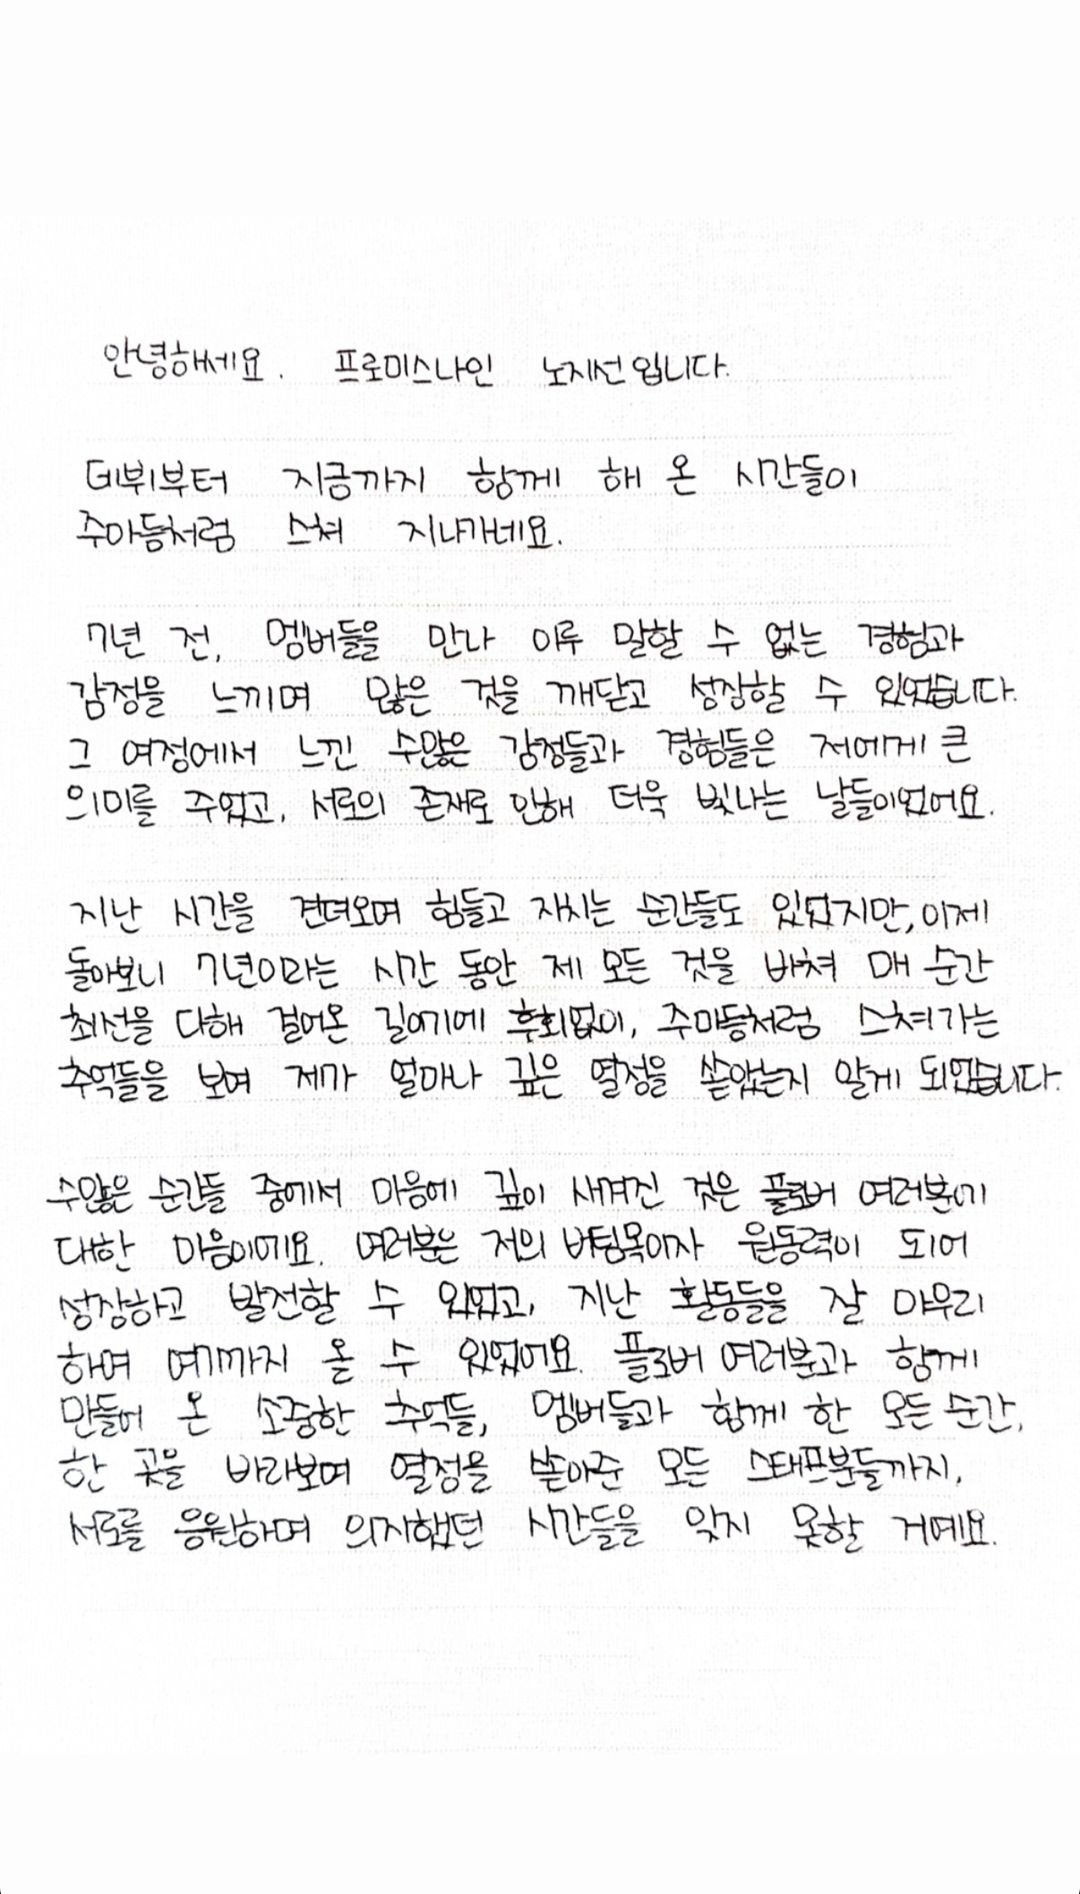 안녕하세요. 프로미스나인 노지선입니다.
데뷔부터 지금까지 함께 해 온 시간들이
주마등처럼 스쳐 지나가네요.
7년 전, 멤버들을 만나 이루 말할 수 없는 경험과
감정을 느끼며 많은 것을 깨닫고 성장할 수 있었습니다.
그 여정에서 느낀 수많은 감정들과 경험들은 저에게 큰
의미를 주었고, 서로의 존재로 인해 더욱 빛나는 날들이었어요.
지난 시간을 견뎌오며 힘들고 지치는 순간들도 있었지만, 이제
돌아보니 7년이라는 시간 동안 제 모든 것을 바쳐 매 순간
최선을 다해 걸어온 길이기에 후회없이, 주마등처럼 스쳐가는
추억들을 보며 제가 얼마나 깊은 열정을 쏟았는지 알게 되었습니다.
수많은 순간들 중에서 마음에 깊이 새겨진 것은 플로버 여러분에
대한 마음이에요. 여러분은 저의 버팀목이자 원동력이 되어
성장하고 발전할 수 있었고, 지난 활동들을 잘 마무리
하며 여기까지 올 수 있었어요. 플로버 여러분과 함께
만들어 온 소중한 추억들, 멤버들과 함께 한 모든 순간,
한 곳을 바라보며 열정을 쏟아준 모든 스태프분들까지,
서로를 응원하며 의지했던 시간들을 잊지 못할 거예요.